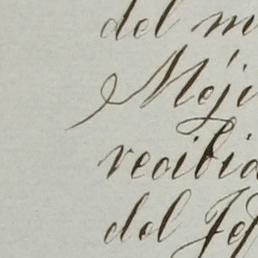 del m
Méji
recibid
del Jef